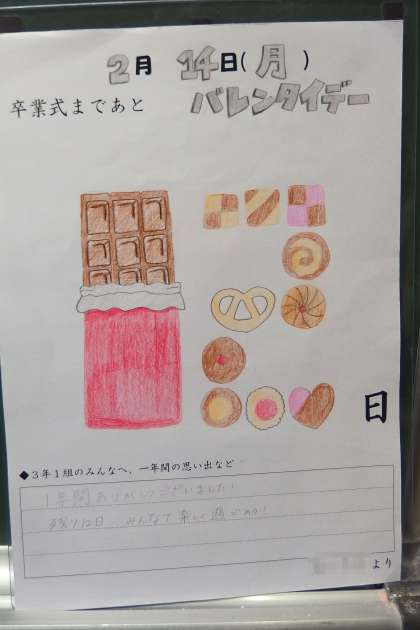 2月 14日(月)
卒業式まであと バレンタイデー
日
◆3年1組のみんなへ、一年間の思い出など
1年間ありがとうございました!
残り12日、みんなで楽しく過ごそう!
より